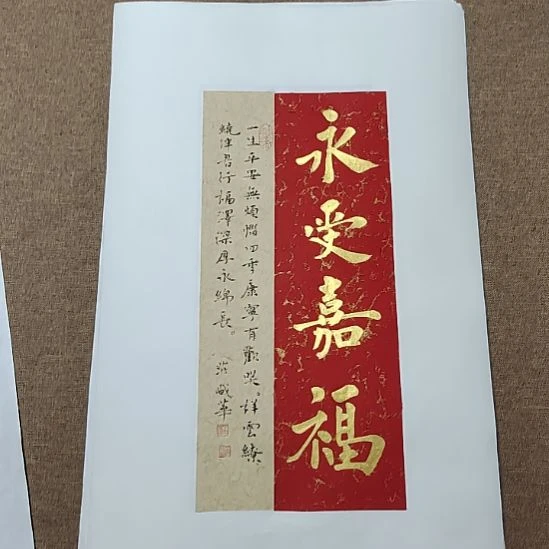 永受嘉福
一生平安無煩惱四季康寧有歡笑祥雲繚
繞伴君行福澤深厚永綿長。